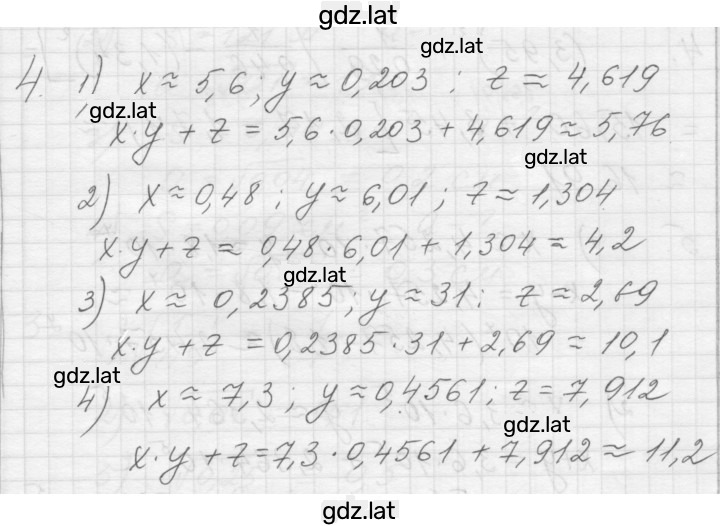 gdz.lat
gdz.lat
4. 1) x ≈ 5,6; y ≈ 0,203 ; z ≈ 4,619
gdz.lat
x·y + z = 5,6·0,203 + 4,619 ≈ 5,76
gdz.lat
2) x ≈ 0,48 ; y ≈ 6,01 ; z ≈ 1,304
x·y + z ≈ 0,48·6,01 + 1,304 ≈ 4,2
gdz.lat
3) x ≈ 0,2385; y ≈ 31; z ≈ 2,69
x·y + z = 0,2385·31 + 2,69 ≈ 10,1
gdz.lat
4) x ≈ 7,3 ; y ≈ 0,4561; z = 7,912
gdz.lat
x·y + z = 7,3·0,4561 + 7,912 ≈ 11,2
gdz.lat